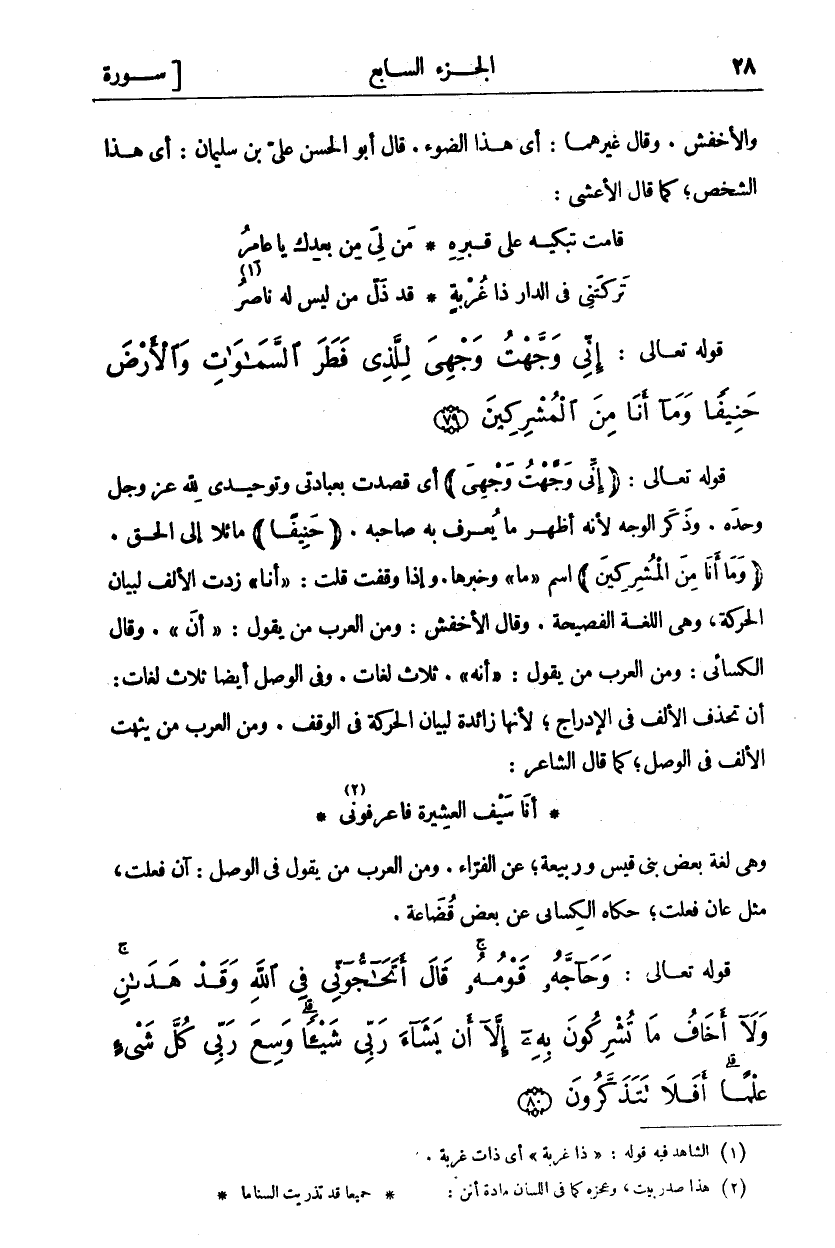 ٢٨ الجزء السابع [ سورة
والأخفش . وقال غيرهما : أى هذا الضوء . قال أبو الحسن علىّ بن سليمان : أى هذا
الشخص؛ كما قال الأعشى :
قامت تبكيه على قبره * مَن لِىَ مِن بعدك يا عامرُ
تركتَنِى فى الدار ذا غُرْبةٍ * قد ذَلّ من ليس له ناصرُ (١)
قوله تعالى : إِنِّى وَجَّهْتُ وَجْهِىَ لِلَّذِى فَطَرَ ٱلسَّمَـٰوَٰتِ وَٱلْأَرْضَ
حَنِيفًا وَمَآ أَنَا مِنَ ٱلْمُشْرِكِينَ ٧٩
قوله تعالى : ﴿ إِنِّى وَجَّهْتُ وَجْهِىَ ﴾ أى قصدت بعبادتى وتوحيدى لله عز وجل
وحدَه . وذَكَر الوجه لأنه أظهر ما يُعرف به صاحبه . ﴿ حَنِيفًا ﴾ مائلا إلى الحق .
﴿ وَمَا أَنَا مِنَ الْمُشْرِكِينَ ﴾ اسم «ما» وخبرها. وإذا وقفت قلت : «أنا» زدت الألف لبيان
الحركة، وهى اللغة الفصيحة . وقال الأخفش : ومن العرب من يقول : « أنَ » . وقال
الكسائى : ومن العرب من يقول : «أنه» . ثلاث لغات . وفى الوصل أيضا ثلاث لغات :
أن تحذف الألف فى الإدراج ؛ لأنها زائدة لبيان الحركة فى الوقف . ومن العرب من يثبت
الألف فى الوصل؛ كما قال الشاعر :
* أنَا سَيْف العشيرة فاعرفونى (٢) *
وهى لغة بعض بنى قيس وربيعة؛ عن الفرّاء . ومن العرب من يقول فى الوصل : آن فعلت،
مثل عان فعلت؛ حكاه الكسائى عن بعض قُضَاعة .
قوله تعالى : وَحَآجَّهُۥ قَوْمُهُۥ ۚ قَالَ أَتُحَـٰٓجُّوٓنِّى فِى ٱللَّهِ وَقَدْ هَدَىٰنِ ۚ
وَلَآ أَخَافُ مَا تُشْرِكُونَ بِهِۦٓ إِلَّآ أَن يَشَآءَ رَبِّى شَيْـًٔا ۗ وَسِعَ رَبِّى كُلَّ شَىْءٍ
عِلْمًا ۗ أَفَلَا تَتَذَكَّرُونَ ٨٠
(١) الشاهد فيه قوله : « ذا غربة » أى ذات غربة .
(٢) هذا صدر بيت، وعجزه كما فى اللسان مادة أنن : * جميعا قد تذريت السناما *